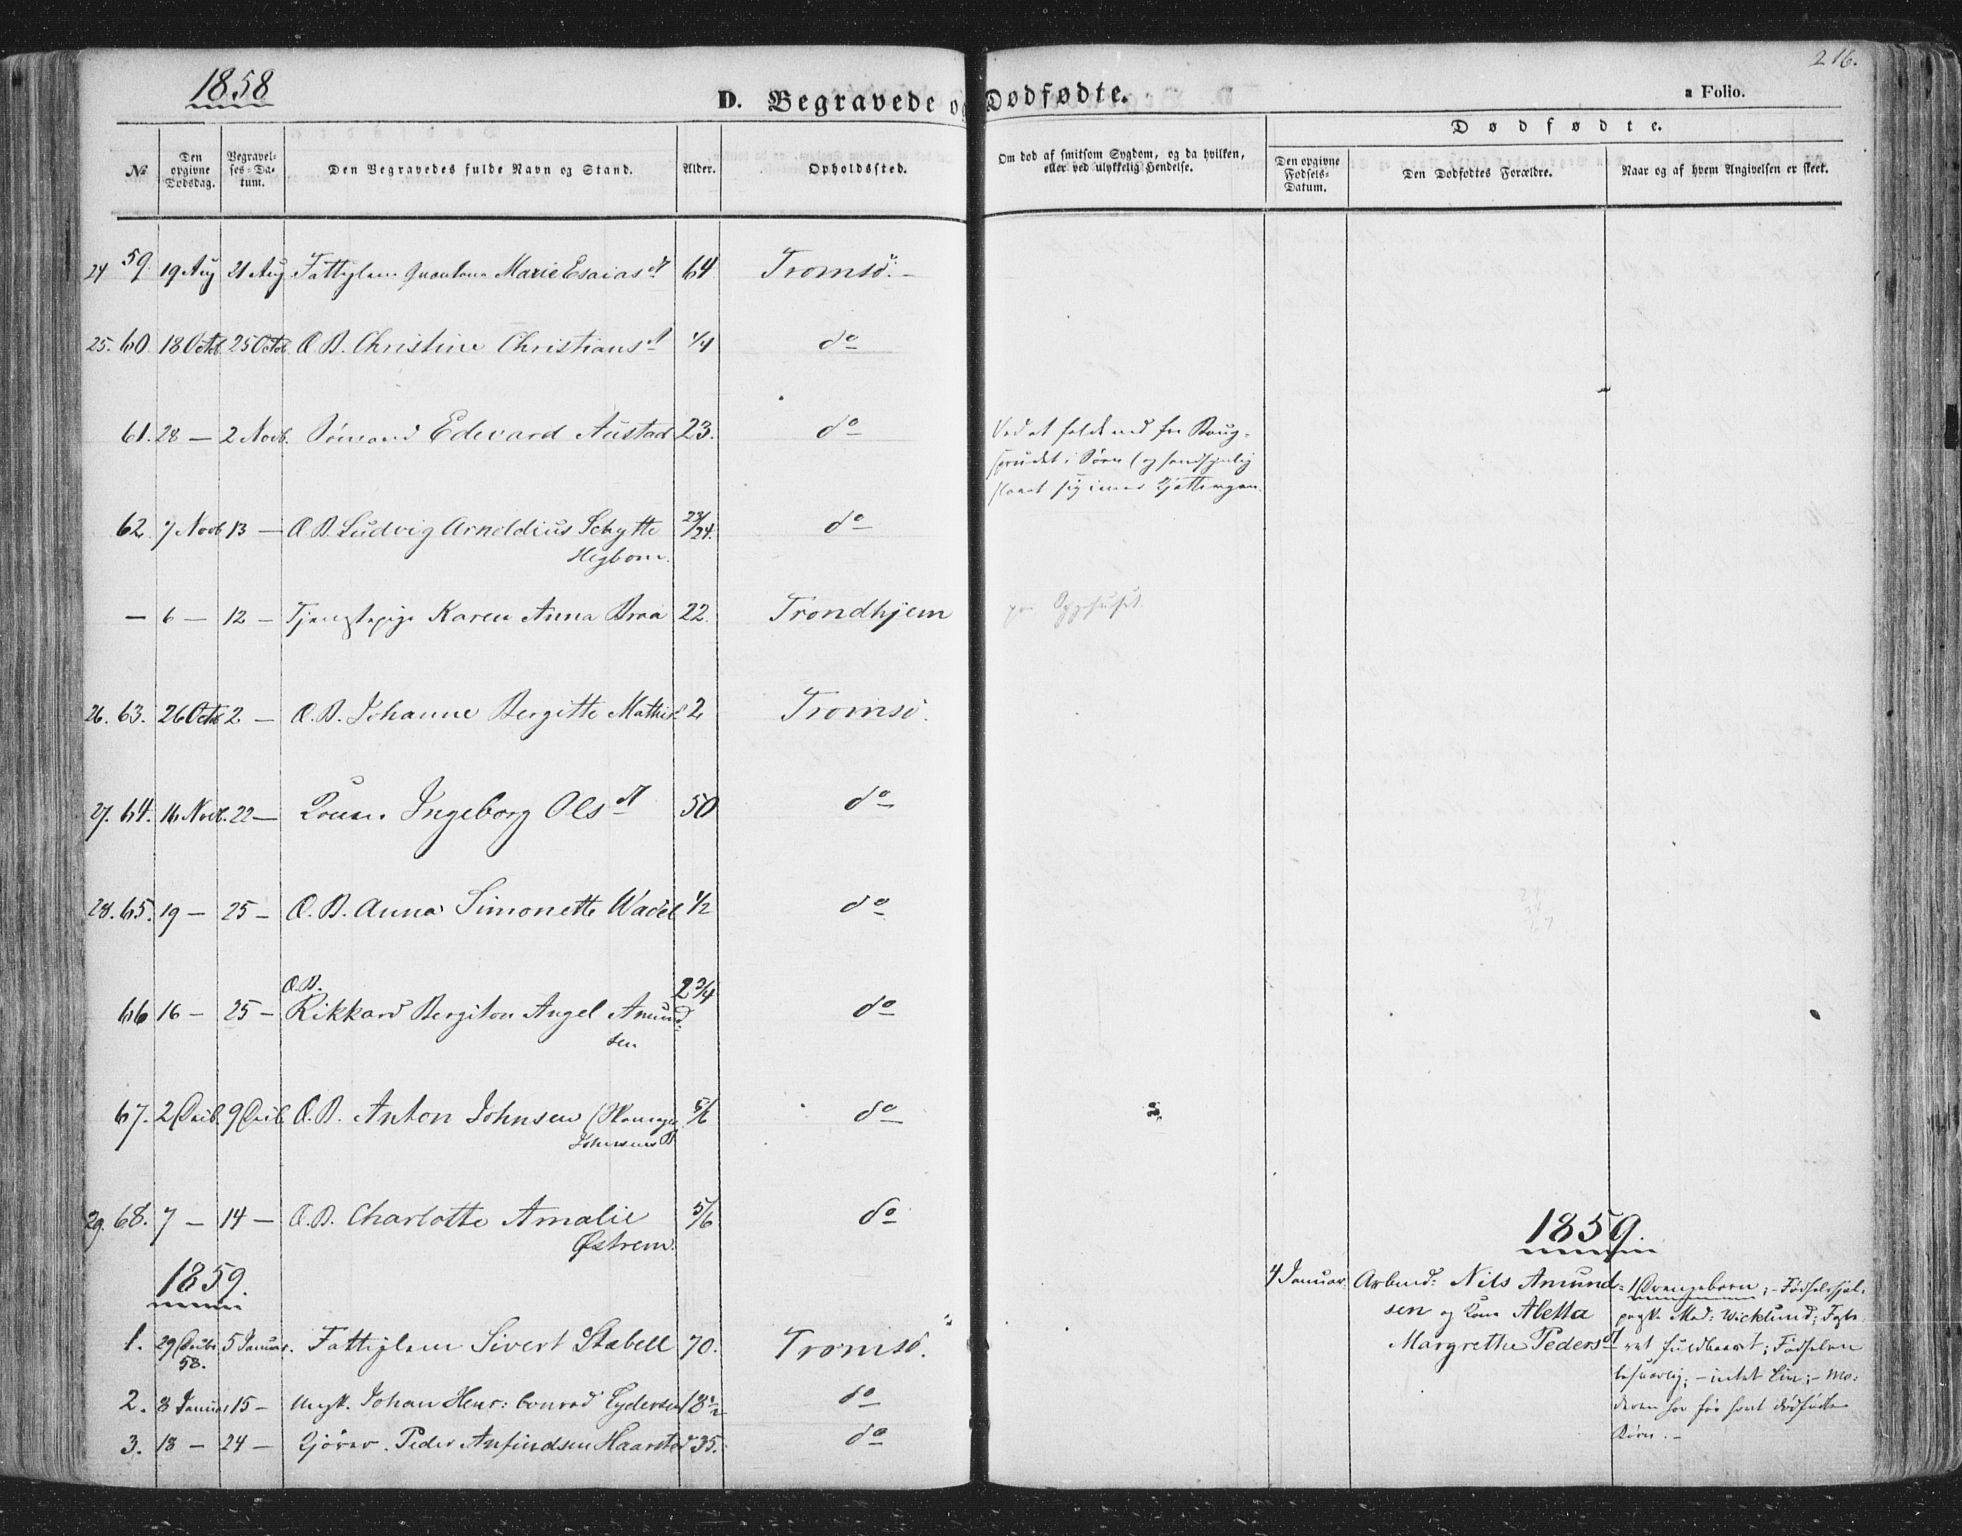 216.
1858
D. Begravede og Dødfødte.
a Folio.
Dødfødte.
№
Den opgivne Dødsdag.
Begravelses-Datum.
Den Begravedes fulde Navn og Stand.
Alder.
Opholdssted.
Om død af smitsom Sygdom, og da hvilken, eller ved ulykkelig Hendelse.
Den opgivne Fødsels-Datum.
Den Dødfødtes Forældre.
Naar og af hvem Angivelsen er skeet.
24 59. 19 Aug 21 Aug Marie Esaiasdt 64 Tromsö. –
25. 60. 18 Octb 25 Octb Æ. B. Christine Christiansdt 1/4 do
61. 28 — 2 Novb. Sömand Edevard Austad 23. do Ved at falde ned fra Boug-
sprudet i Söen (og sandsynlig
slaaet sig imod
62. 7 Novb 13 — Æ B Ludvig Arnoldius Schytte 23/24. do
Hegbom.
— 6 — 12 — Tjenestepige Karen Anna Braa 22. Trondhjem paa Sygehuset
26. 63. 26 Octb 2 — Æ. B. Johanne Bergitte Mathis 2 Tromsö.
27. 64. 16 Novb. 22 — Kone. Ingeborg Olsdt 50 do
28. 65. 19 — 25 — Æ. B. Anna Simonette Wadel 1/2 do
Æ. B.
66 16 — 25 — Rikkard Bergiton Angel Amund: 2 3/4 do
sen
67. 2 Decb. 9 Decb. Æ. B. Anton Johnsen 5/6 do
Johnsens B
29. 68. 7 — 14 — Æ. B. Charlotte Amalie 5/6 do
Østrem.
1859.
1859.
4 Januar. Arbmd: Nils Amund-
sen og Kone Aletta
Margrethe Pedersdt
1 Drengebarn; – Födselshjel.
Mad: Wicklund; Fost-
ret fuldbaaret; Födselen
besværlig; – intet Liv; – Mo-
deren har för havt dödfödte
Börn. –
1. 29 Decbr 58. 5 Januar. Fattiglem Sivert Stabell 70. Tromsö.
2. 8 Januar 15 — Ungk. Johan Henr: Conrad Eydersen 18 1/2 do
3. 18 — 24 — Peder Anfindsen Haarstad 35. do